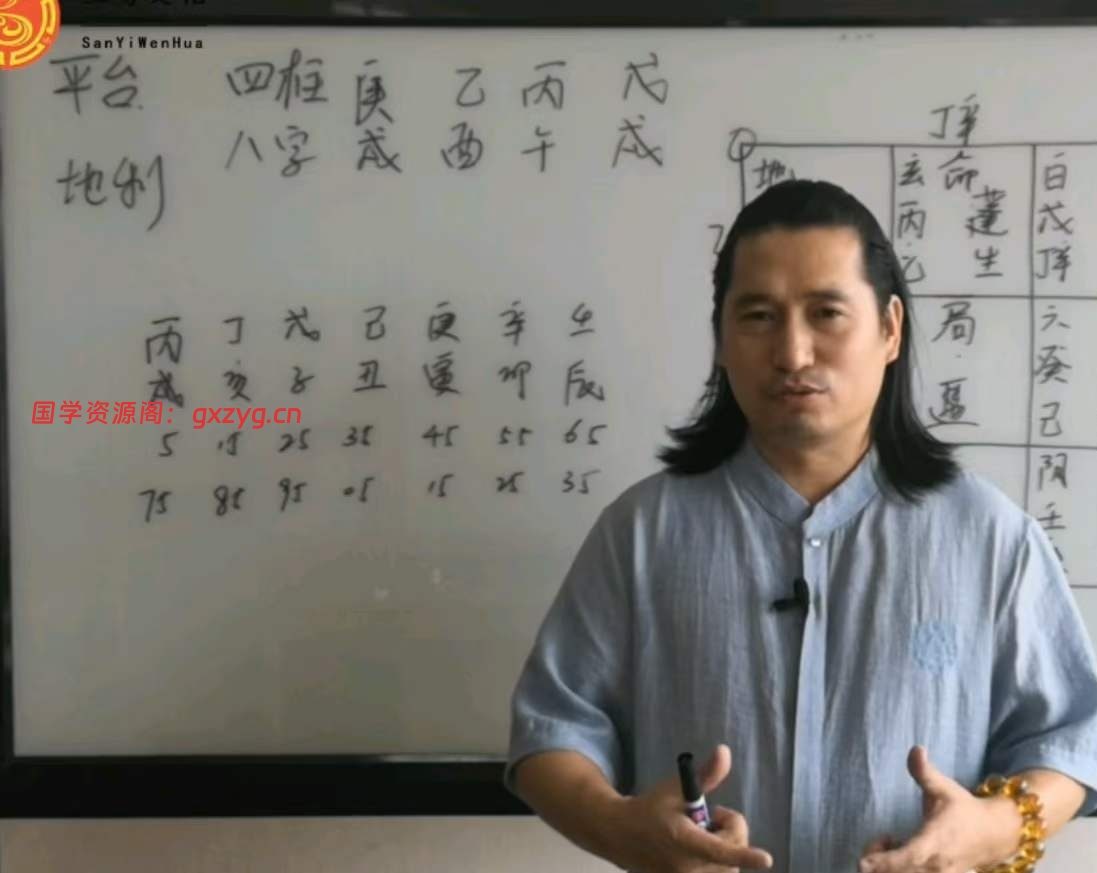 SanYiWenHua
平台 四柱 庚 乙 丙 戊
八字 戌 酉 午 戌
地利
丙 丁 戊 己 庚 辛 壬
戌 亥 子 丑 寅 卯 辰
国学资源阁：gxzyg.cn
5 15 25 35 45 55 65
75 85 95 05 15 25 35
丁辛
地
玄 命 蓬
丙 生
白
戊
丁辛
局
六
癸
己
阴
壬